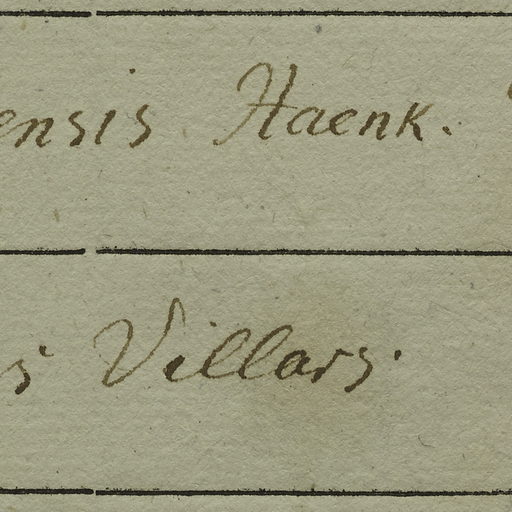 ensis Haenk.
s Villars.